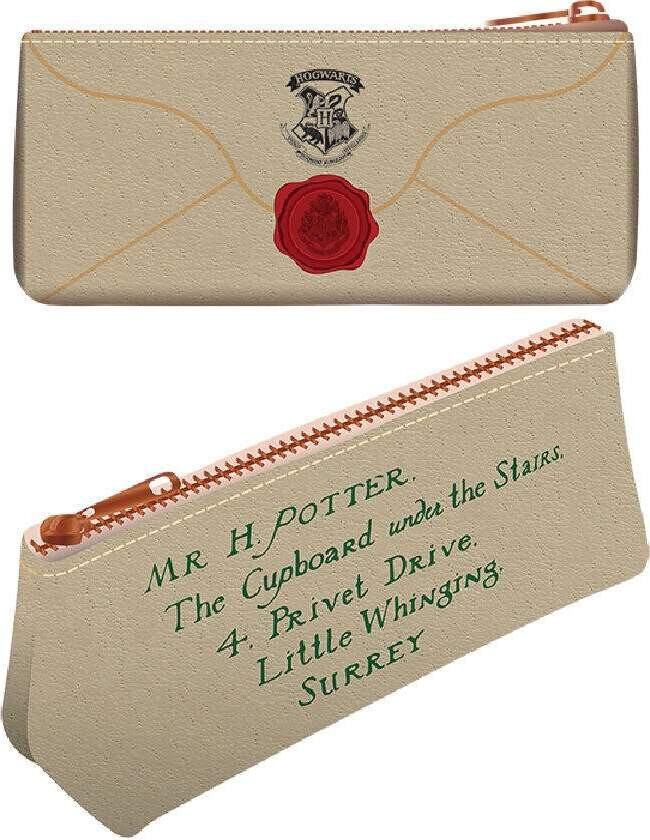 HOGWARTS
H
MR H. POTTER.
The Cupboard under the Stairs.
4. Privet Drive.
Little Whinging.
SURREY